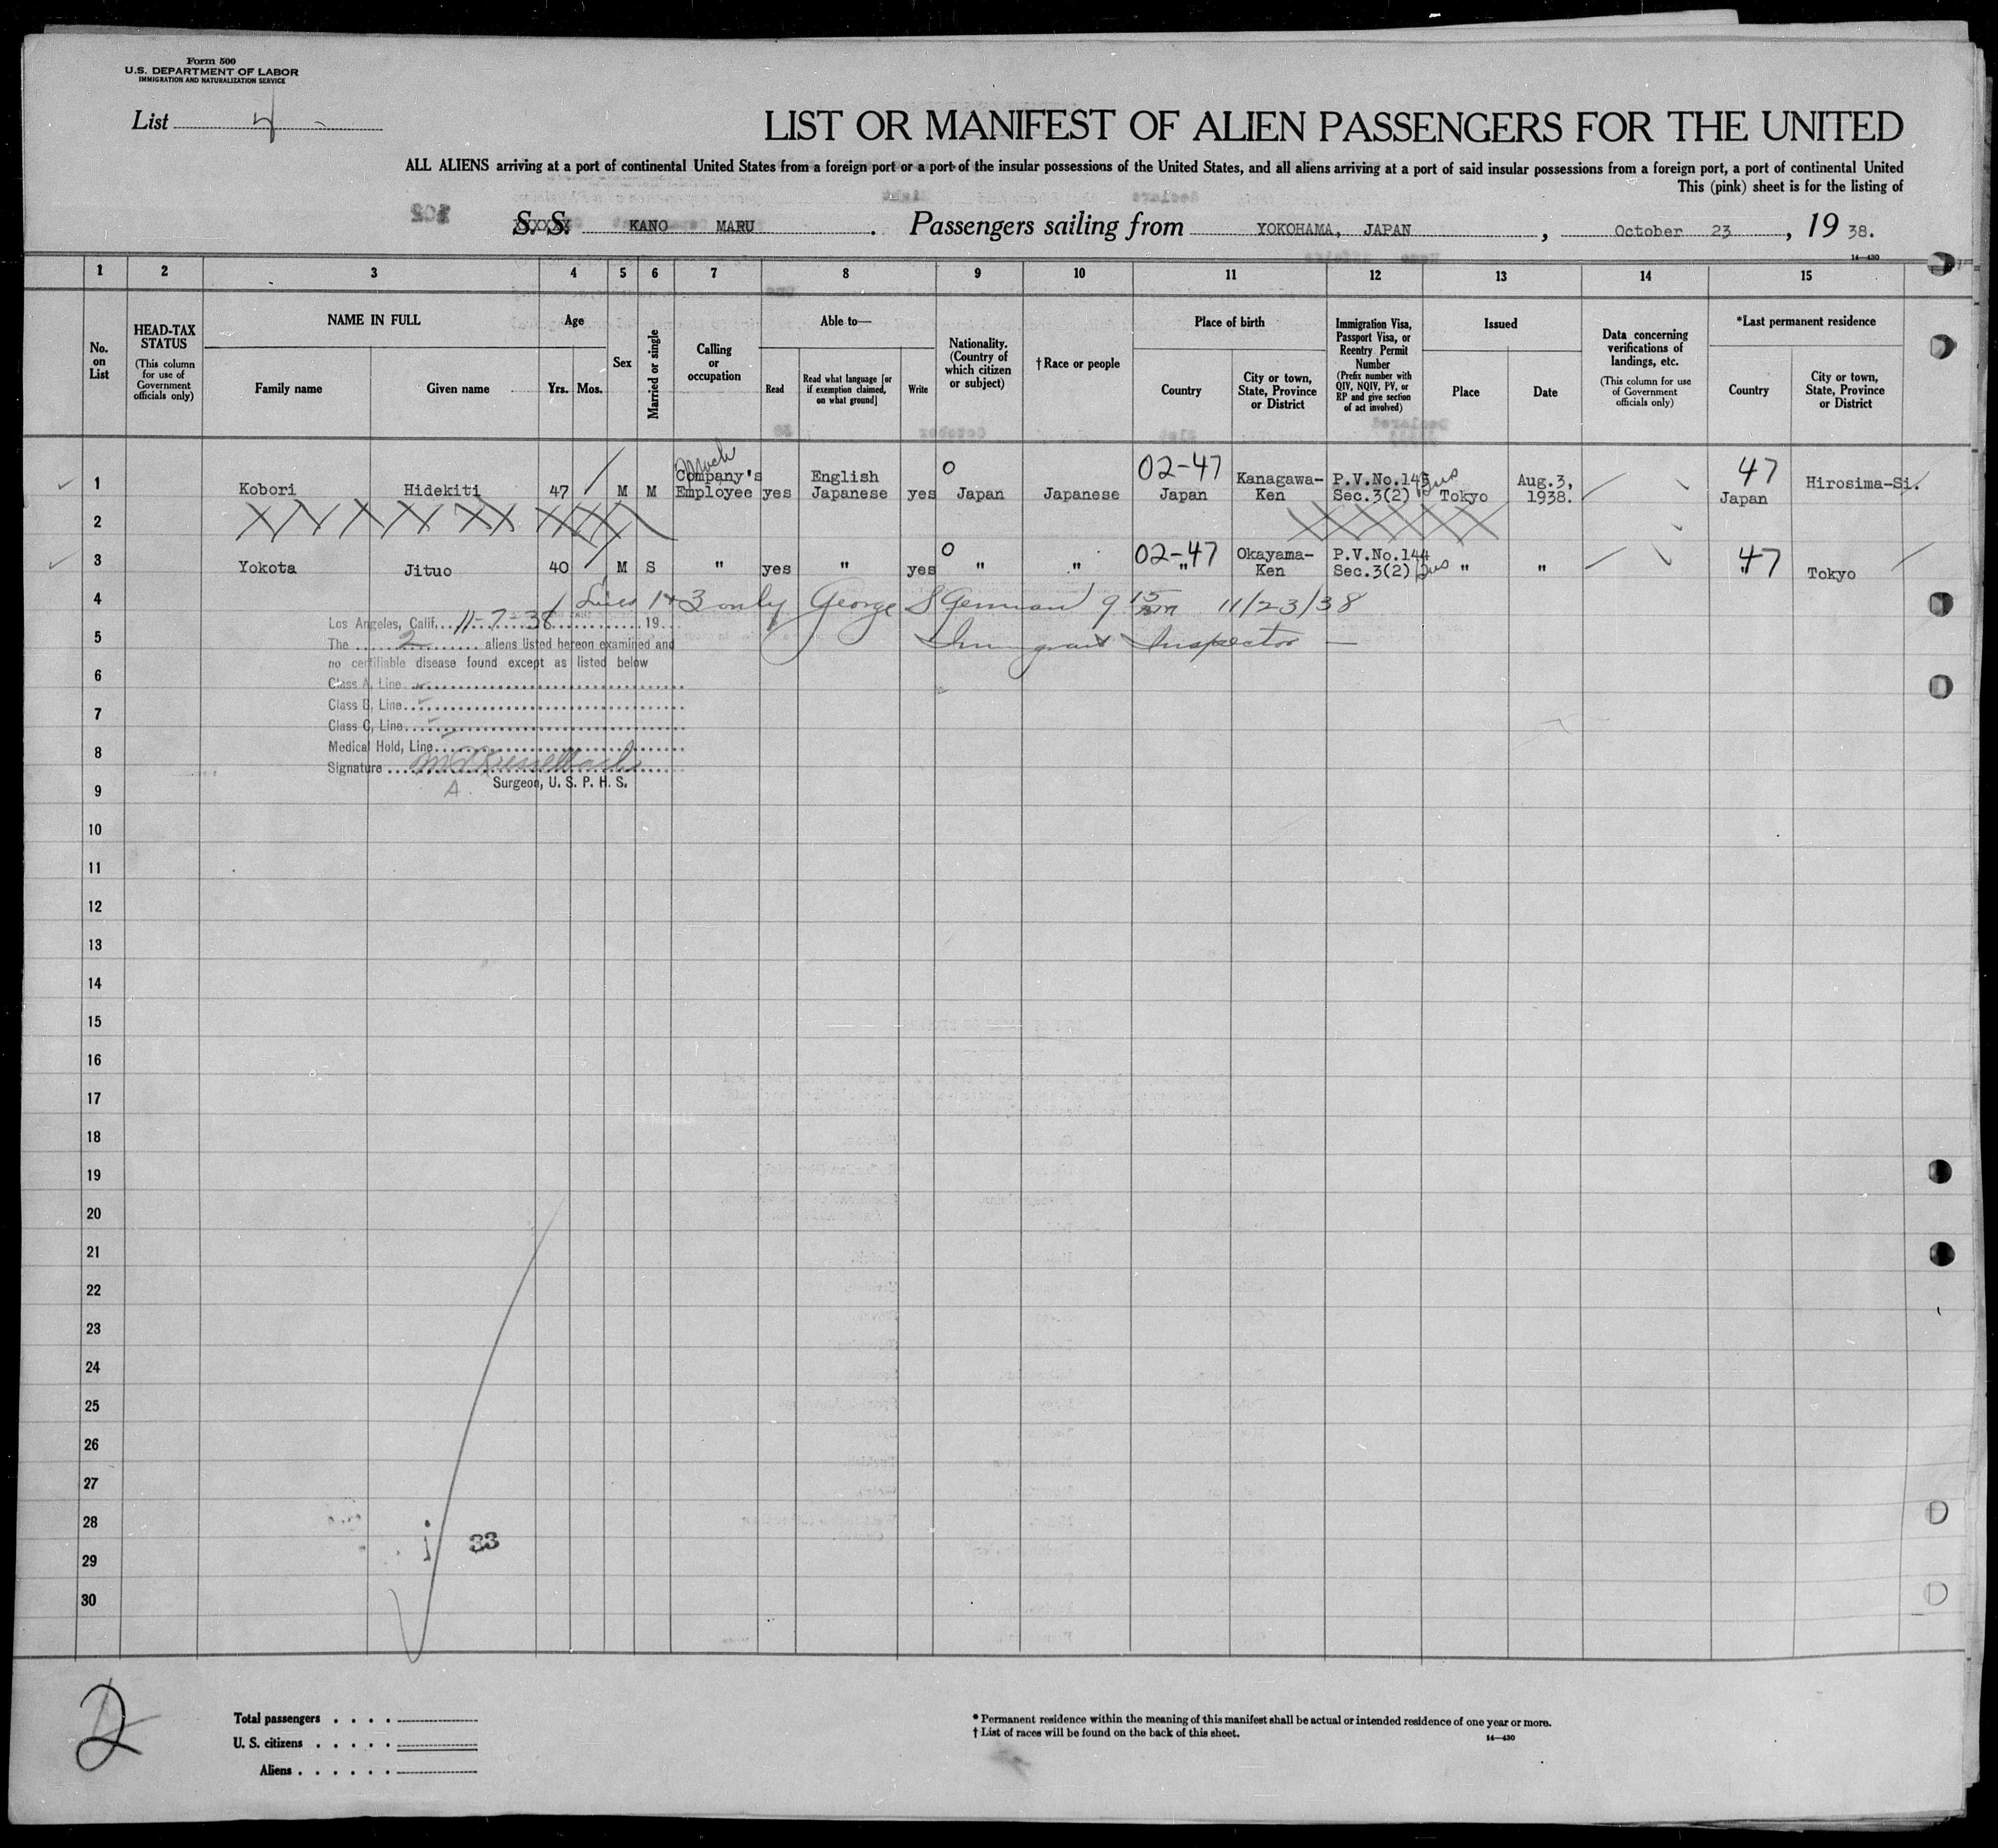 Form 500
U.S. DEPARTMENT OF LABOR
IMMIGRATION AND NATURALIZATION SERVICE
List 4
LIST OR MANIFEST OF ALIEN PASSENGERS FOR THE UNITED
ALL ALIENS arriving at a port of continental United States from a foreign port or a port of the insular possessions of the United States, and all aliens arriving at a port of said insular possessions from a foreign port, a port of continental United
This (pink) sheet is for the listing of
S. S. KANO MARU . Passengers sailing from YOKOHAMA, JAPAN , October 23 , 19 38.
14—430
1 2 3 4 5 6 7 8 9 10 11 12 13 14 15
No. on List
HEAD-TAX STATUS
(This column for use of Government officials only)
NAME IN FULL
Family name
Given name
Age
Yrs.
Mos.
Sex
Married or single
Calling or occupation
Able to—
Read
Read what language [or if exemption claimed, on what ground]
Write
Nationality. (Country of which citizen or subject)
†Race or people
Place of birth
Country
City or town, State, Province or District
Immigration Visa, Passport Visa, or Reentry Permit Number
(Prefix number with QIV, NQIV, PV, or RP and give section of act involved)
Issued
Place
Date
Data concerning verifications of landings, etc.
(This column for use of Government officials only)
*Last permanent residence
Country
City or town, State, Province or District
1 Kobori Hidekiti 47 M M Company's Employee yes English Japanese yes 0 Japan Japanese 02-47 Japan Kanagawa-Ken P.V.No.145 Sec.3(2) Tokyo Aug.3, 1938. 47 Japan Hirosima-Si.
2
3 Yokota Jituo 40 M S " yes " yes 0 " " 02-47 " Okayama-Ken P.V.No.144 Sec.3(2) " " 47 " Tokyo
4 Lines 1+3 only George S German 9 15 11/23/38
Los Angeles, Calif. 11-7-38 19
5
Immigrant Inspector
The 2 aliens listed hereon examined and
no certifiable disease found except as listed below
6
Class A, Line
Class B, Line
7
Class C, Line
Medical Hold, Line
8
Signature
Surgeon, U. S. P. H. S.
9
10
11
12
13
14
15
16
17
18
19
20
21
22
23
24
25
26
27
28
33
29
30
2
Total passengers
U. S. citizens
Aliens
* Permanent residence within the meaning of this manifest shall be actual or intended residence of one year or more.
† List of races will be found on the back of this sheet.
14—430